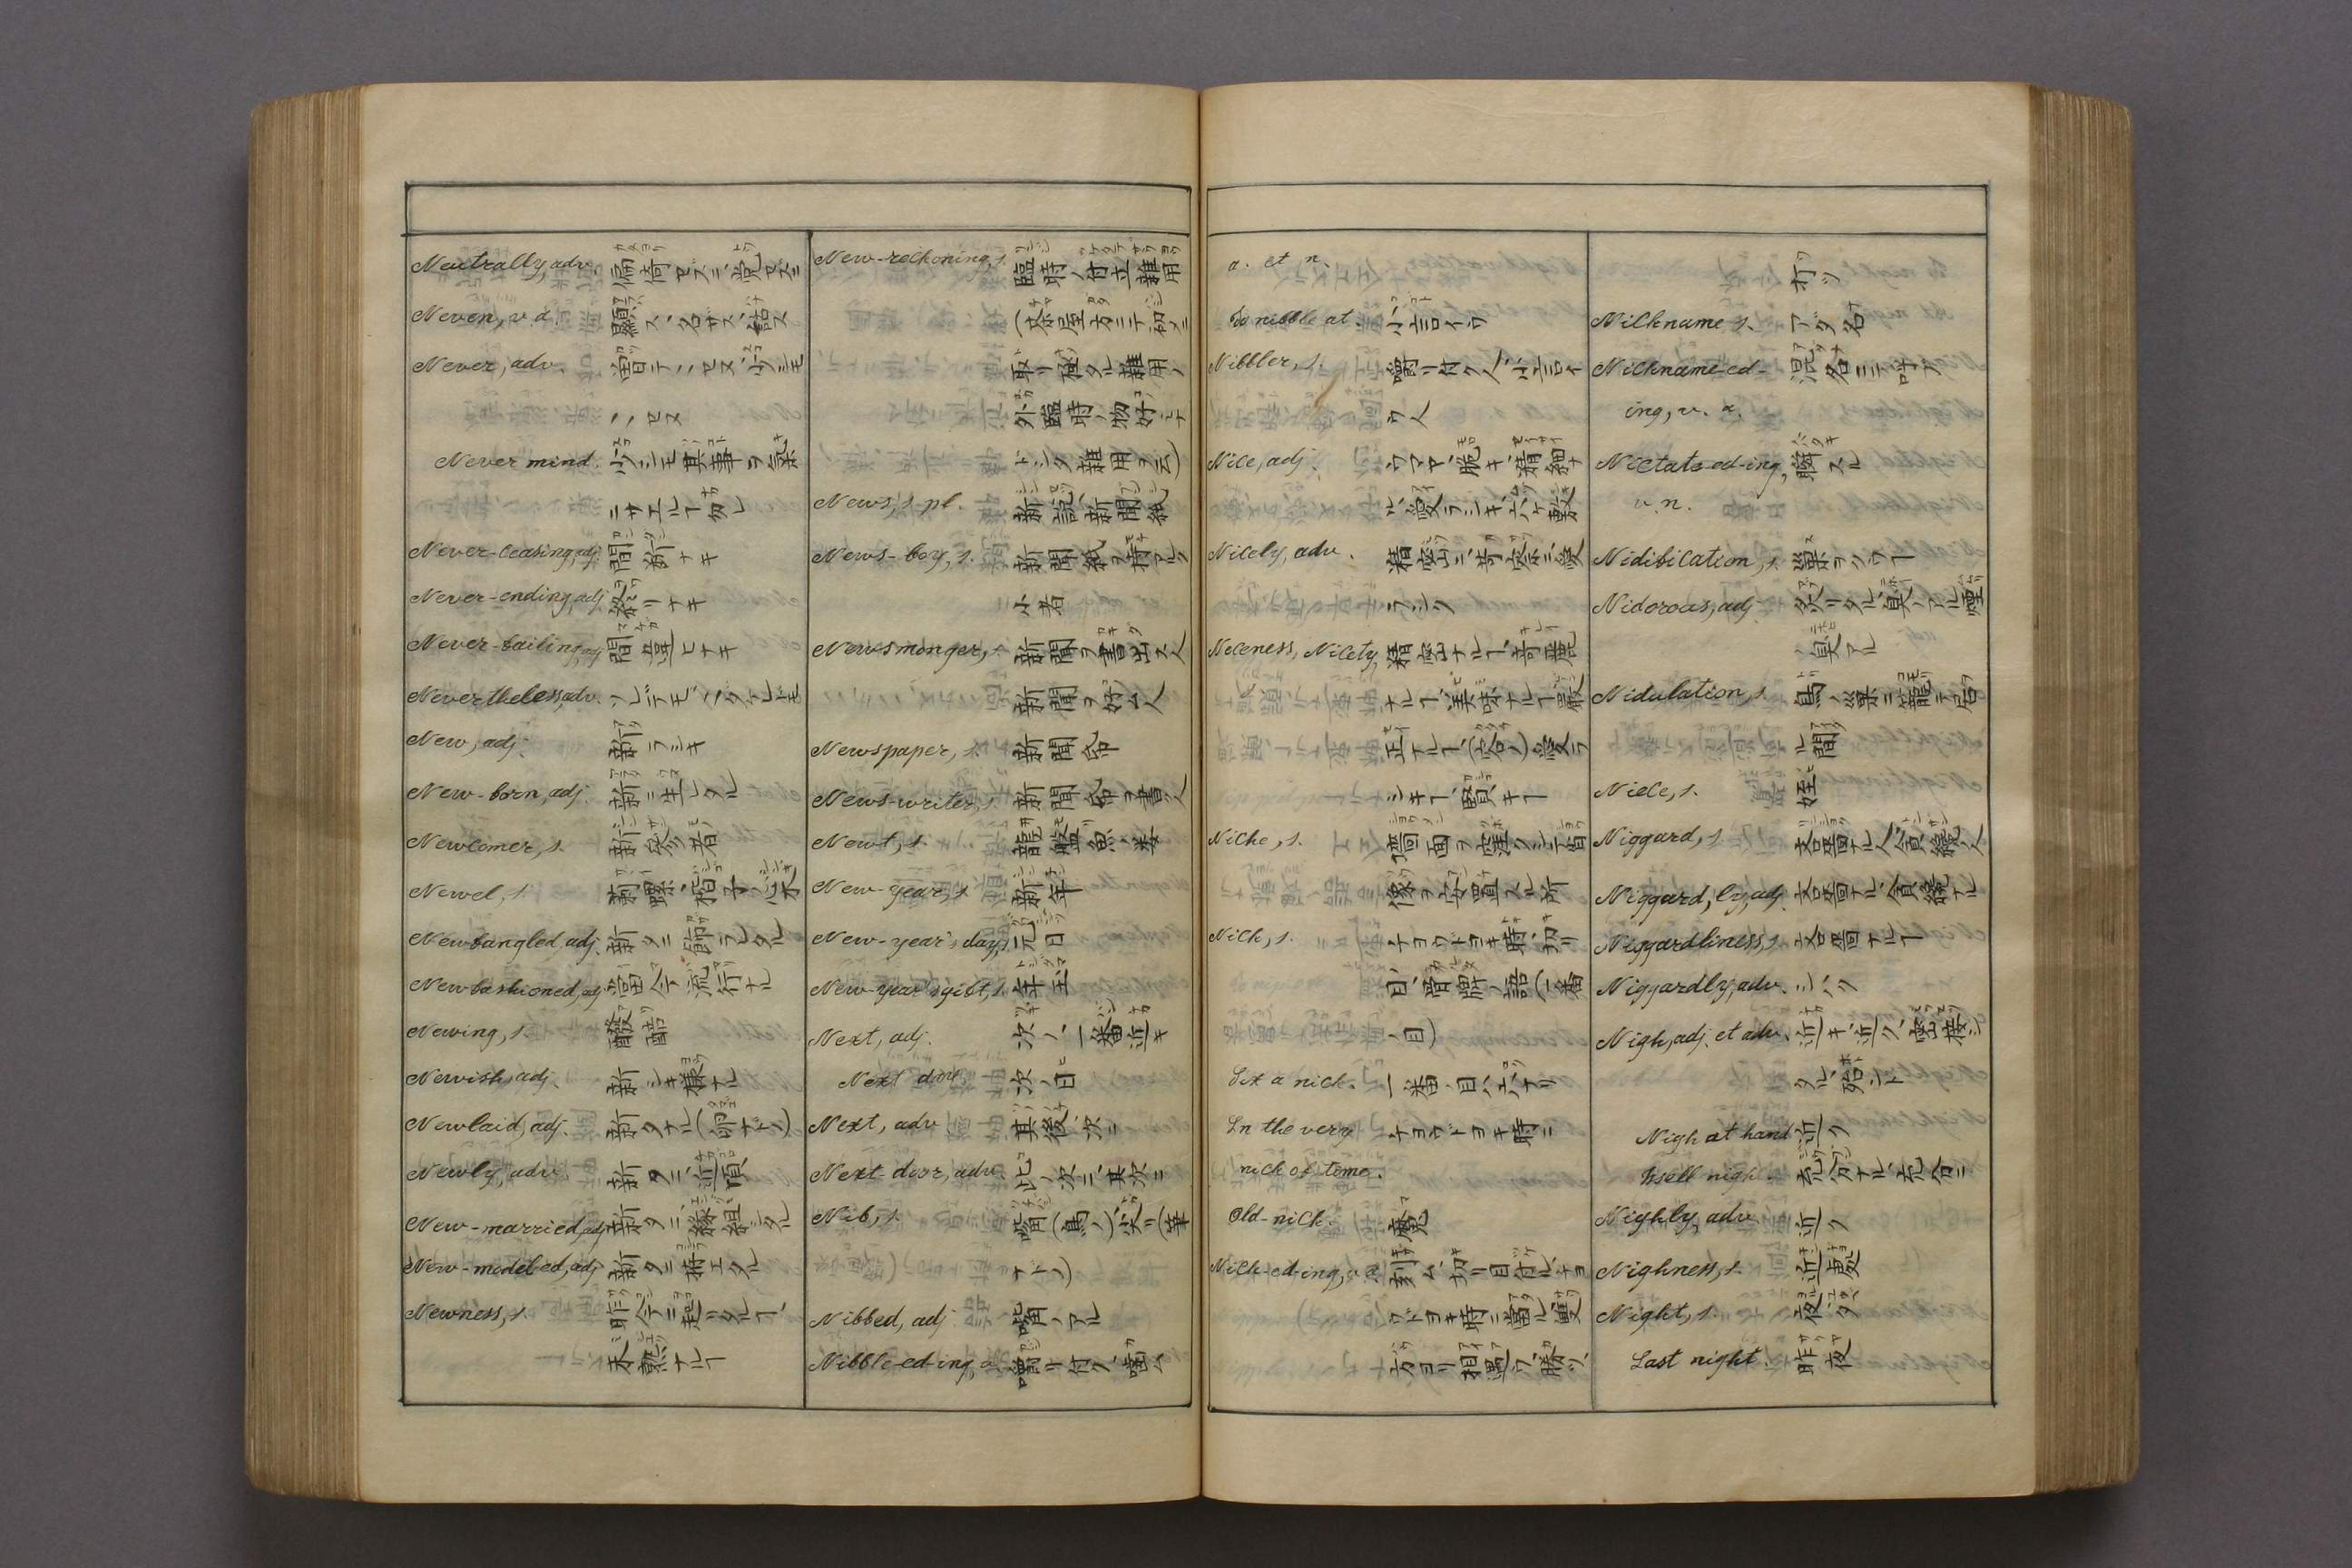 Neutrally, adv. 偏倚セズニ、党セズニ
Neven, v. a. 顯ス、名ザス、話ス
Never, adv. 曽テ、、セヌ、少シモ
、、セヌ
Never mind. 少シモ其事ヲ氣
ニサエルヿ勿レ
Never-ceasing, adj. 間断ナキ
Never-ending, adj. 終リナキ
Never-failing, adj. 間違ヒナキ
Nevertheless, adv. ソレデモ
New, adj. 新ラシキ
New-born, adj. 新ニ生レタル
Newcomer, s. 新参者
Newel, s.
Newfangled, adj. 新タニ飾ラレタル
Newfashioned, adj. 當今流行ナル
Newing, s.
Newish, adj. 新シキ様ナル
Newlaid, adj. 新タナル(卵ナドノ)
Newly, adv. 新タニ、近頃
New-married, adj. 新タニ縁組シタル
New-model-ed, adj. 新タニ拵エタル
Newness, s. 昨今ニ起リタルヿ、
未熟ナルヿ
New-reckoning, s. 臨時ノ廿立雜用
(茶屋方ニテ初メニ
取リ極タル雜用ノ
外臨時ノ物好ミナ
ドシタ雜用ヲ云)
News, s. pl. 新説、新聞紙
News-boy, s. 新聞紙ヲ持アルク
小者
Newsmonger, s. 新聞ヲ書出ス人
新聞ヲ好ム人
Newspaper, s. 新聞帋
News-writer, s. 新聞帋ヲ書ク人
Newt, s. 龍盤魚ノ委
New-year, s. 新年
New-year's day, s. 元日
New-year's gift, s. 年玉
Next, adj. 次ノ、一番近キ
Next day 次ノ日
Next, adv. 其後、次ニ
Next-door, adv. 此ノ次ニ、其次ニ
Nib, s. 嘴(鳥ノ)、尖リ(筆
ナドノ)
Nibbed, adj. 嘴ノアル
Nibble-ed-ing, v. 囓リ付ク、噛ム
a. et n.
To nibble at. 小言イウ
Nibbler, s. 囓リ付ク人、小言イ
ウ人
Nice, adj. ウマヤ、脆キ、精細ナ
ル、愛ラシキ、六ケ敷
Nicely, adv. 精密ニ、奇麗ニ、愛
ラシク
Niceness, Nicety, 精密ナルヿ、奇麗
s. ナルヿ、美味ナルヿ、嚴
正ナルヿ、(容ノ)愛ラ
シキヿ、賢キヿ
Niche, s. 墻面ヲ窪クシテ肖
像ヲ安置スル所
Nick, s. チョウドヨキ時、切リ
目、骨牌ノ語(一番
ノ目)
Six a nick. 一番ノ目
In the very チョウドヨキ時ニ
nick of time.
Old-nick. 魔
Nick-ed-ing, v. a. 刻ム、切リ目付ル、チョ
ウドヨキ時ニ當ル、雙
方ヨリ相遇ウ、勝ツ、
打ツ
Nickname s. アダ名
Nickname-ed- 渾名ニテ呼ブ
ing, v. a.
Nictate-ed-ing, 瞬スル
v. n.
Nidification, s. 巣ヲクウヿ
Nidorous, adj. 炙リタル臭ノアル、煙
臭アル
Nidulation, s. 鳥ノ巣ニ籠テ居
ル間
Niece, s. 姪
Niggard, s. 吝嗇ナル人、貪ル人
Niggard, ly, adj. 吝嗇ナル、貪ナル
Niggardliness, s. 吝嗇ナルヿ
Niggardly, adv. シハク
Nigh, adj. et adv. 近キ、近ク、密接シ
タル、殆ント
Nigh at hand 近ク
Well nigh. 充分ナル、充分ニ
Nighly, adv. 近ク
Nighness, s. 近處
Night, s. 夜、夕
Last night. 昨夜